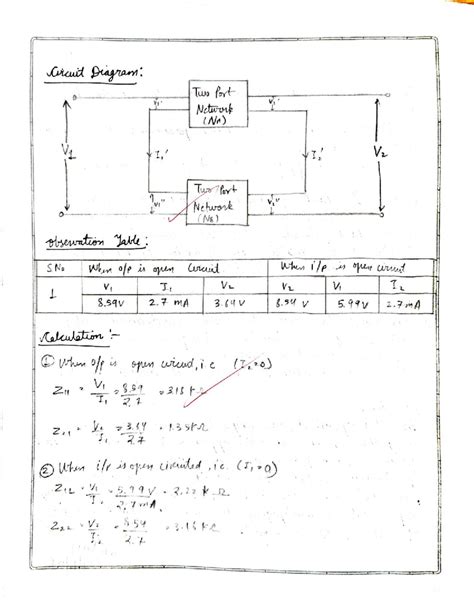 Circuit Diagram:
Two Port
Network
(NA)
V1'
V2'
V1
I1'
I2'
V2
V1"
V2"
Two Port
Network
(NB)
Observation Table:
S.No When o/p is open Circuit When i/p is open circuit
V1 I1 V2 V2 V1 I2
1 8.59V 2.7 mA 3.64V 8.54 V 5.99V 2.7mA
Calculation :-
① When o/p is open circuit, i.e (I2=0)
Z11 = V1/I1 = 8.59/2.7 = 3.18 kΩ
= V2/I1 = /2.7 = 1.35kΩ
② When i/p is open circuited, i.e. (I1=0)
Z12 = = 5.99V/2.7mA = kΩ
= 8.54/2.7 = 3.16 kΩ